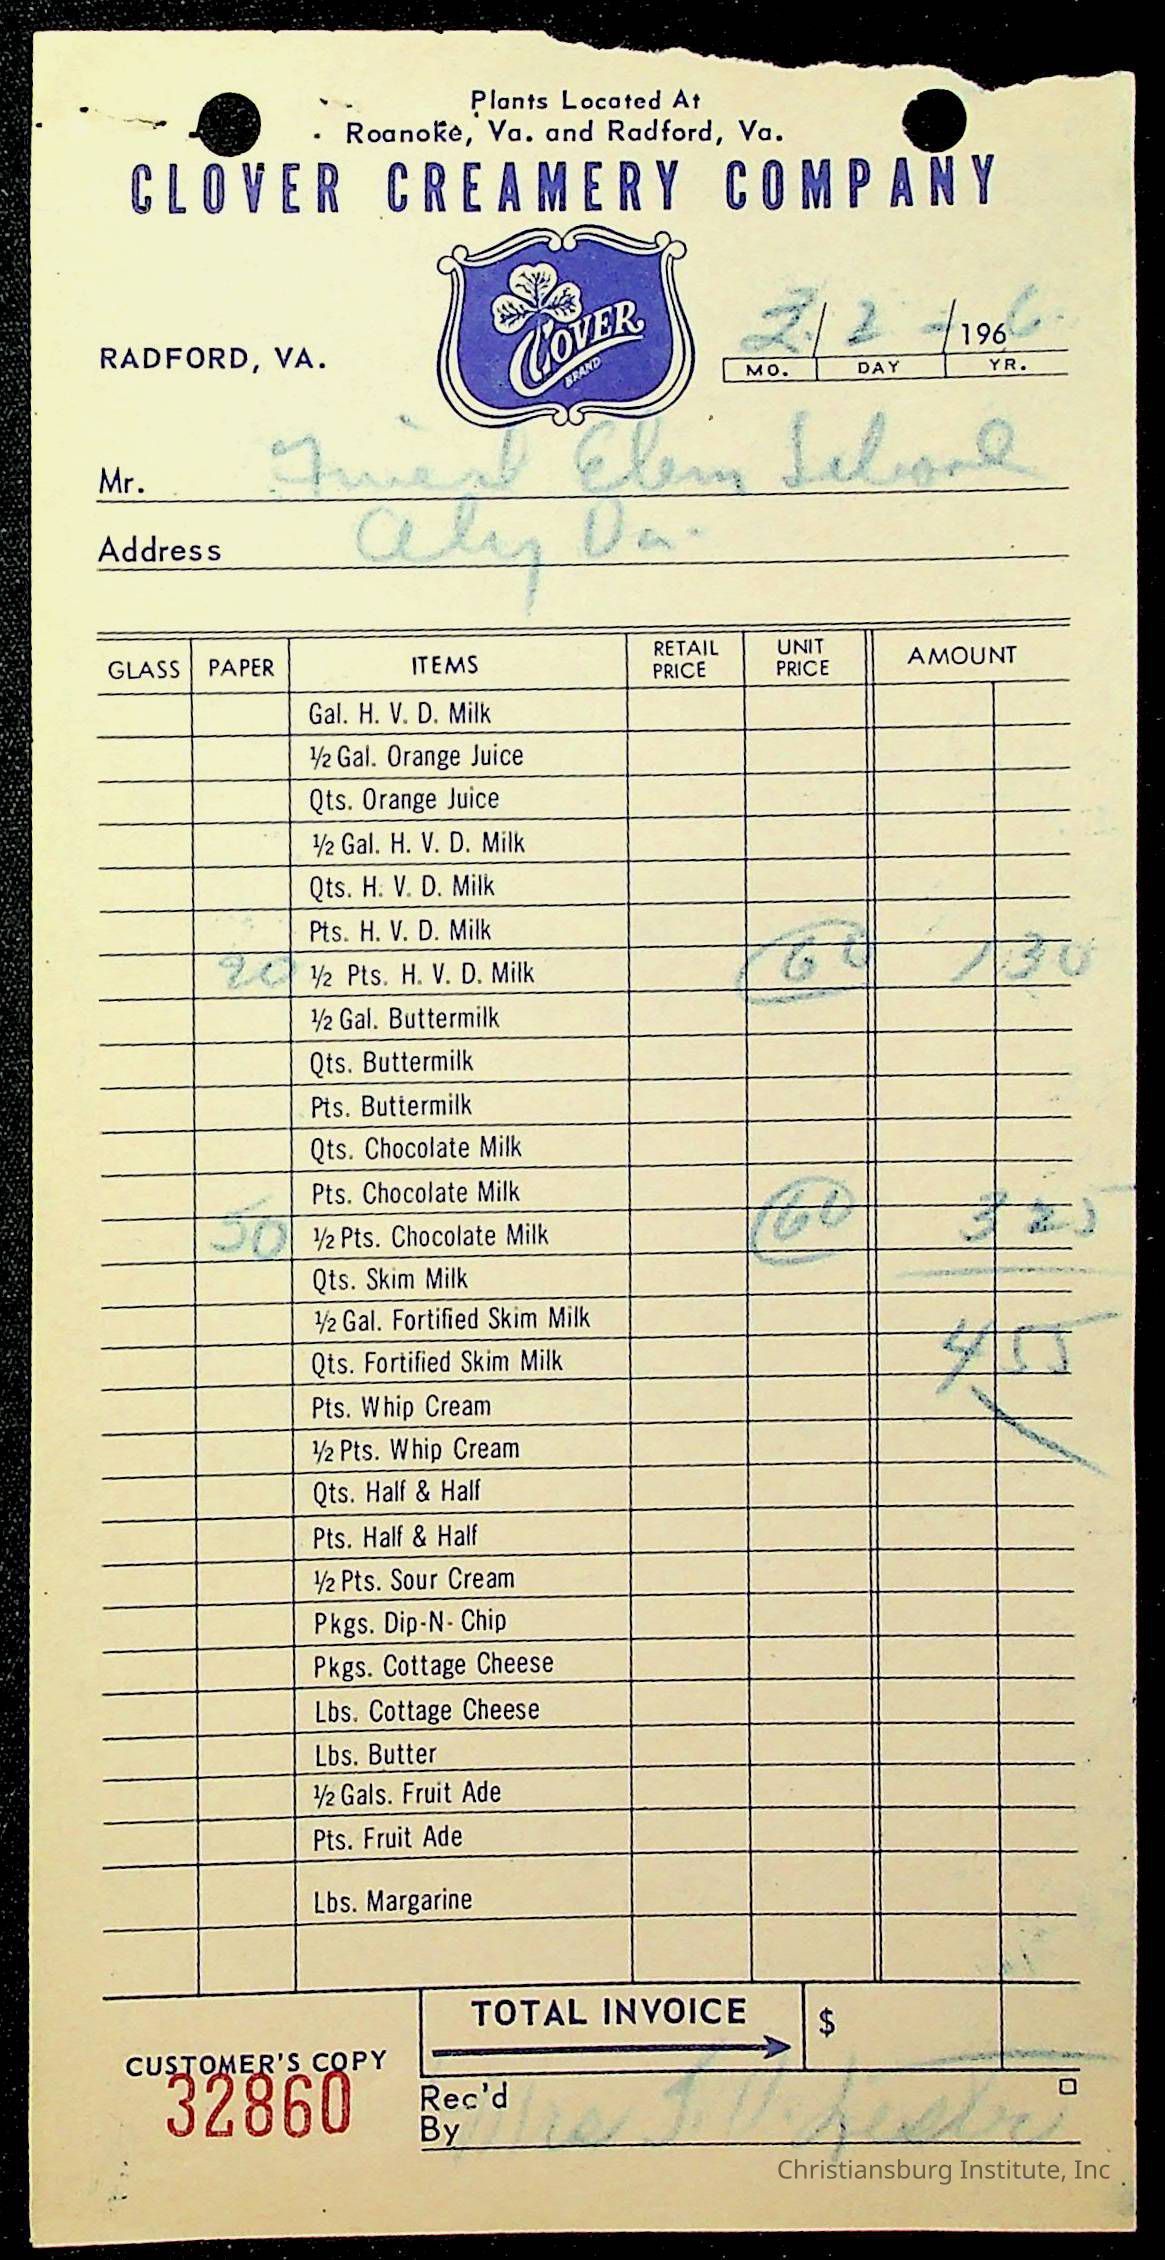 Plants Located At
Roanoke, Va. and Radford, Va.
CLOVER CREAMERY COMPANY
CLOVER
BRAND
RADFORD, VA.
2/2-/1966
MO. DAY YR.
Mr. Friend Elem School
Address Va.
GLASS PAPER ITEMS RETAIL PRICE UNIT PRICE AMOUNT
Gal. H. V. D. Milk
½ Gal. Orange Juice
Qts. Orange Juice
½ Gal. H. V. D. Milk
Qts. H. V. D. Milk
Pts. H. V. D. Milk
20 ½ Pts. H. V. D. Milk 1 30
½ Gal. Buttermilk
Qts. Buttermilk
Pts. Buttermilk
Qts. Chocolate Milk
Pts. Chocolate Milk
50 ½ Pts. Chocolate Milk 3 25
Qts. Skim Milk
½ Gal. Fortified Skim Milk
4 55
Qts. Fortified Skim Milk
Pts. Whip Cream
½ Pts. Whip Cream
Qts. Half & Half
Pts. Half & Half
½ Pts. Sour Cream
Pkgs. Dip-N-Chip
Pkgs. Cottage Cheese
Lbs. Cottage Cheese
Lbs. Butter
½ Gals. Fruit Ade
Pts. Fruit Ade
Lbs. Margarine
TOTAL INVOICE $
CUSTOMER'S COPY
32860
Rec'd
By Mrs
Christiansburg Institute, Inc